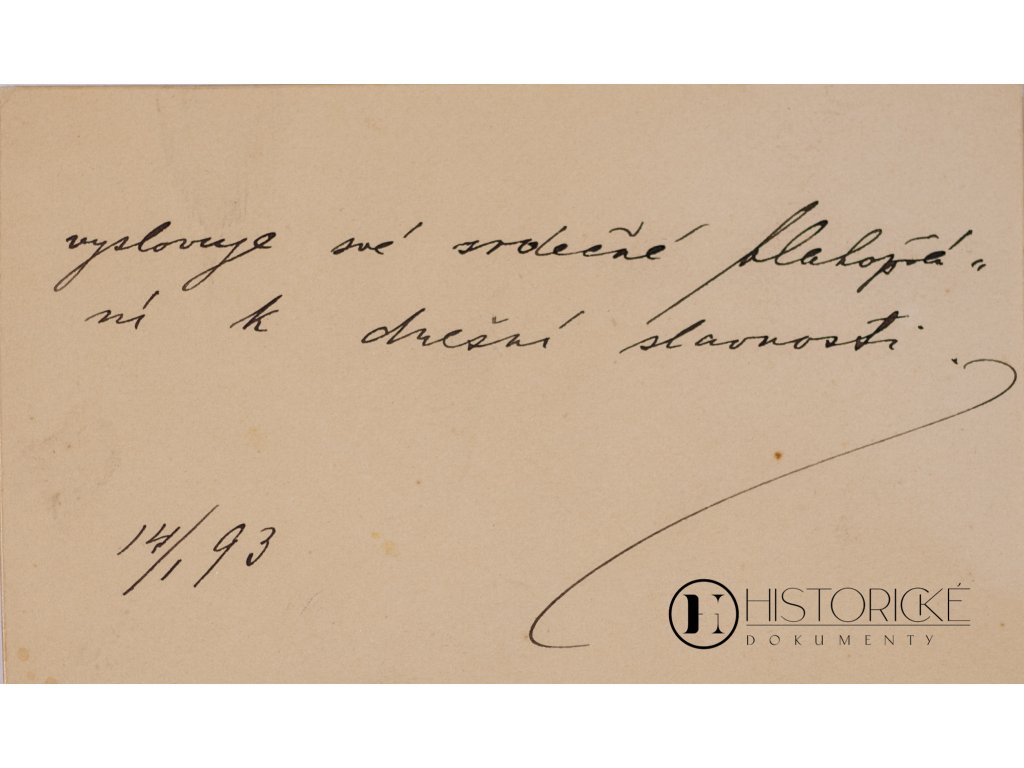 vyslovuje své srdečné blahopřá„
ní k dnešní slavnosti.
14/I 93
HISTORICKÉ
DOKUMENTY